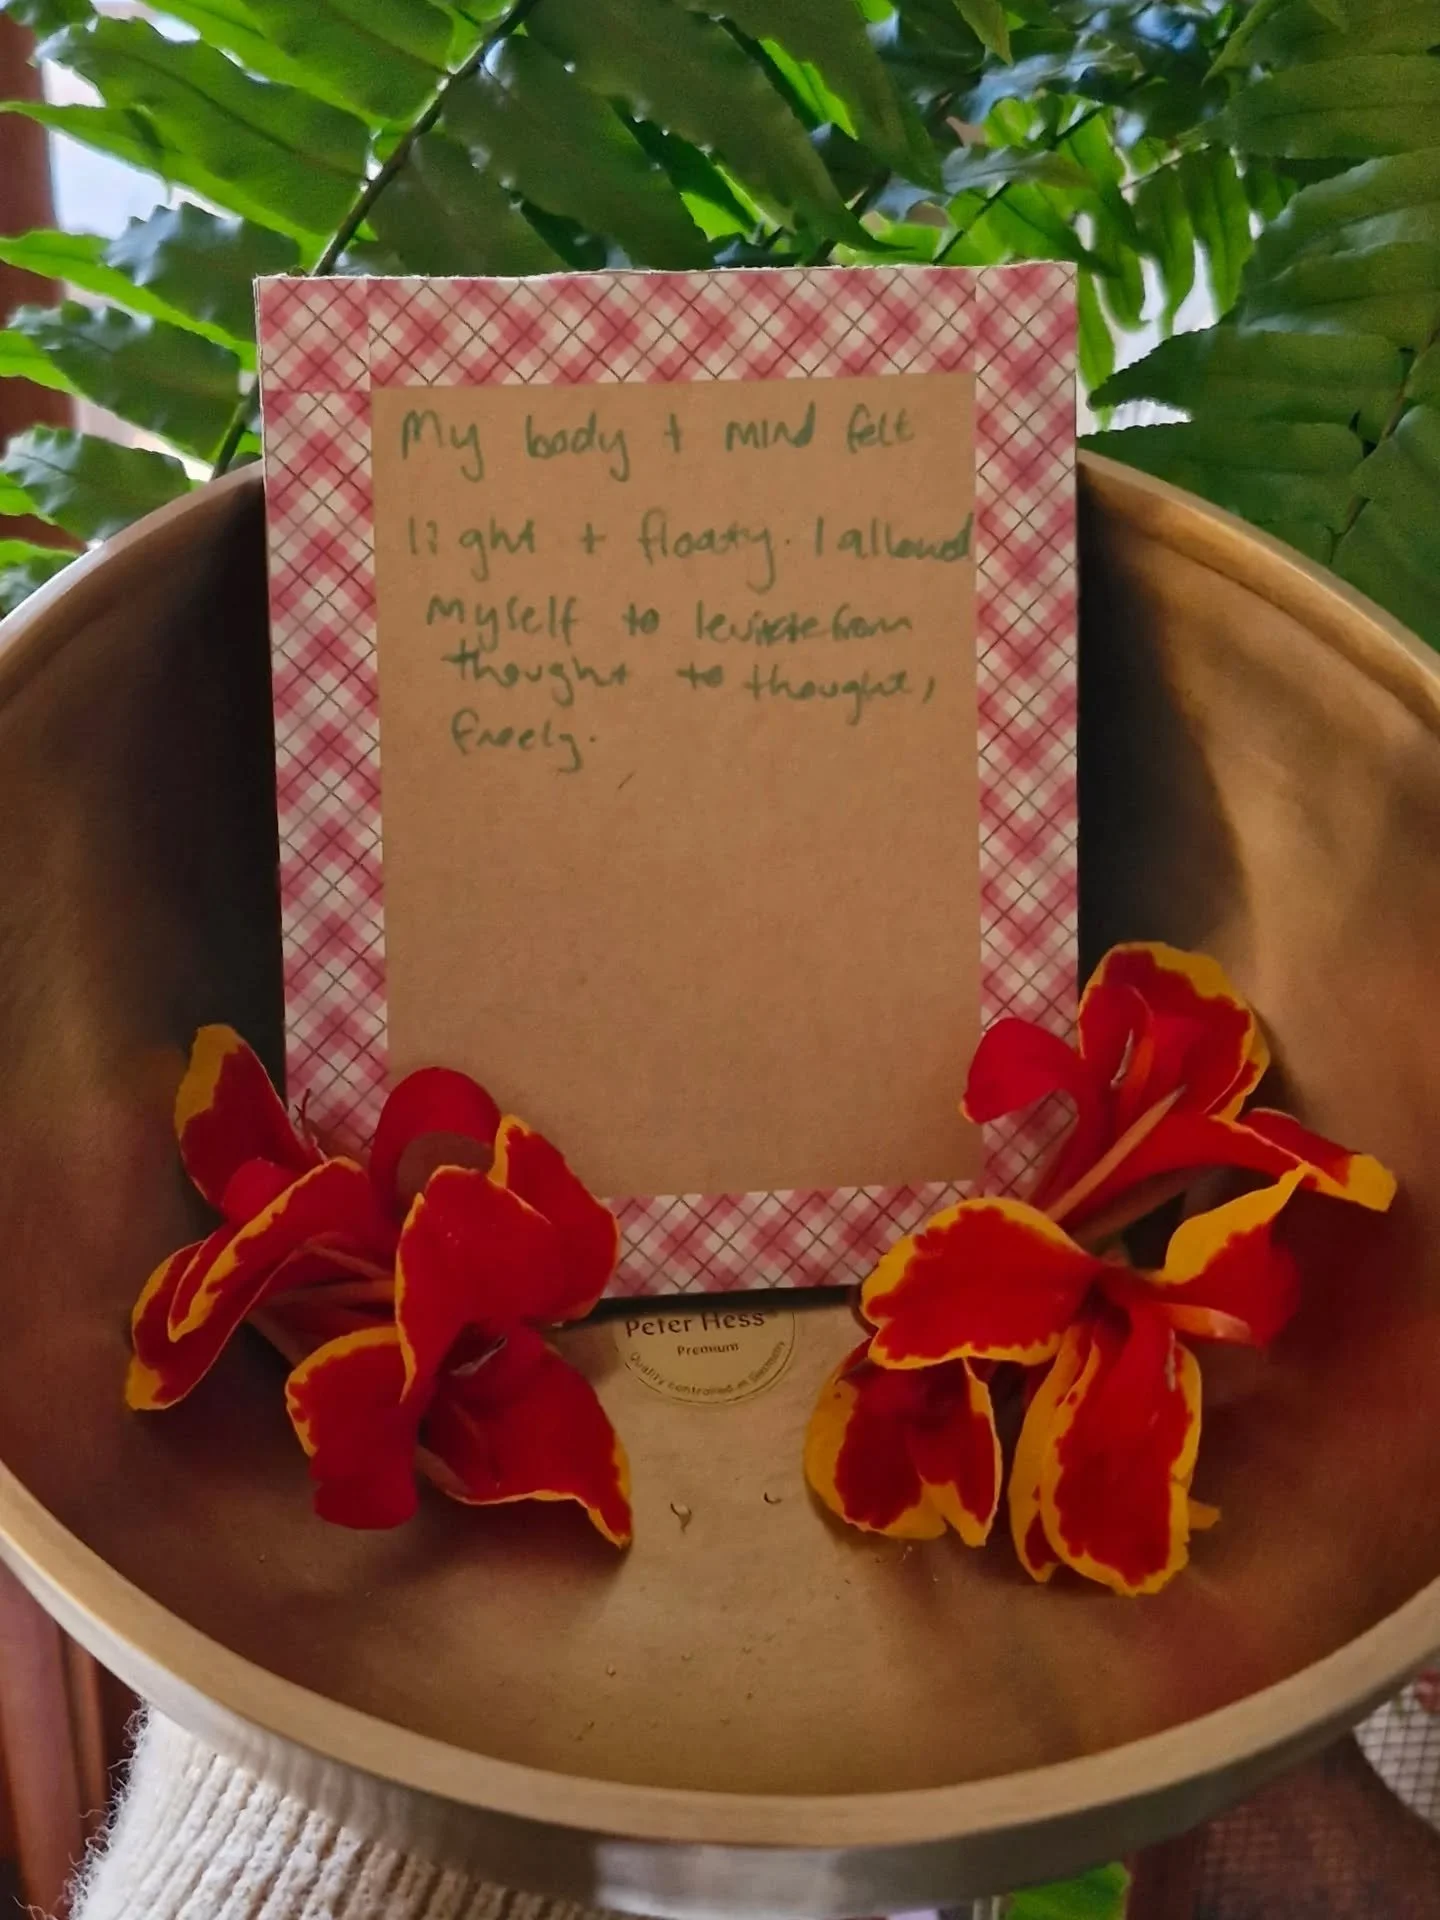 My body + mind felt
light + floaty. I allowed
myself to levitate from
thought to thought,
freely.
Peter Hess
Premium
Quality controlled in Germany